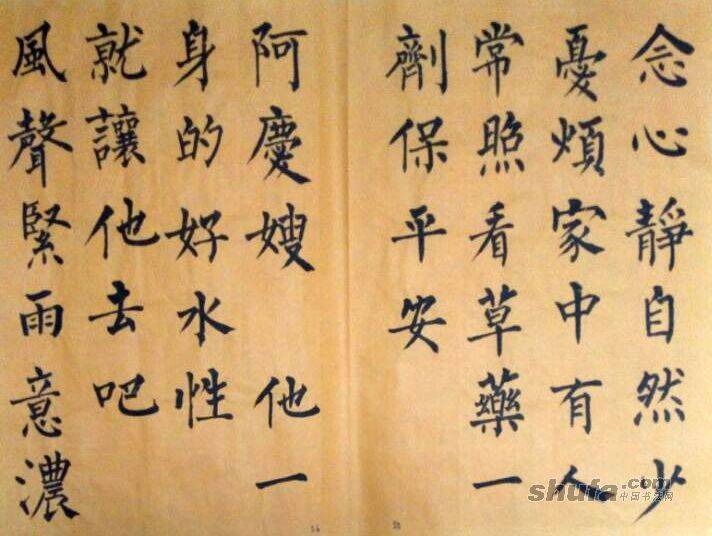 念心靜自然少
憂煩家中有人
常照看草藥一
劑保平安
阿慶嫂 他一
身的好水性
就讓他去吧
風聲緊雨意濃
shufa.com
中国书法网